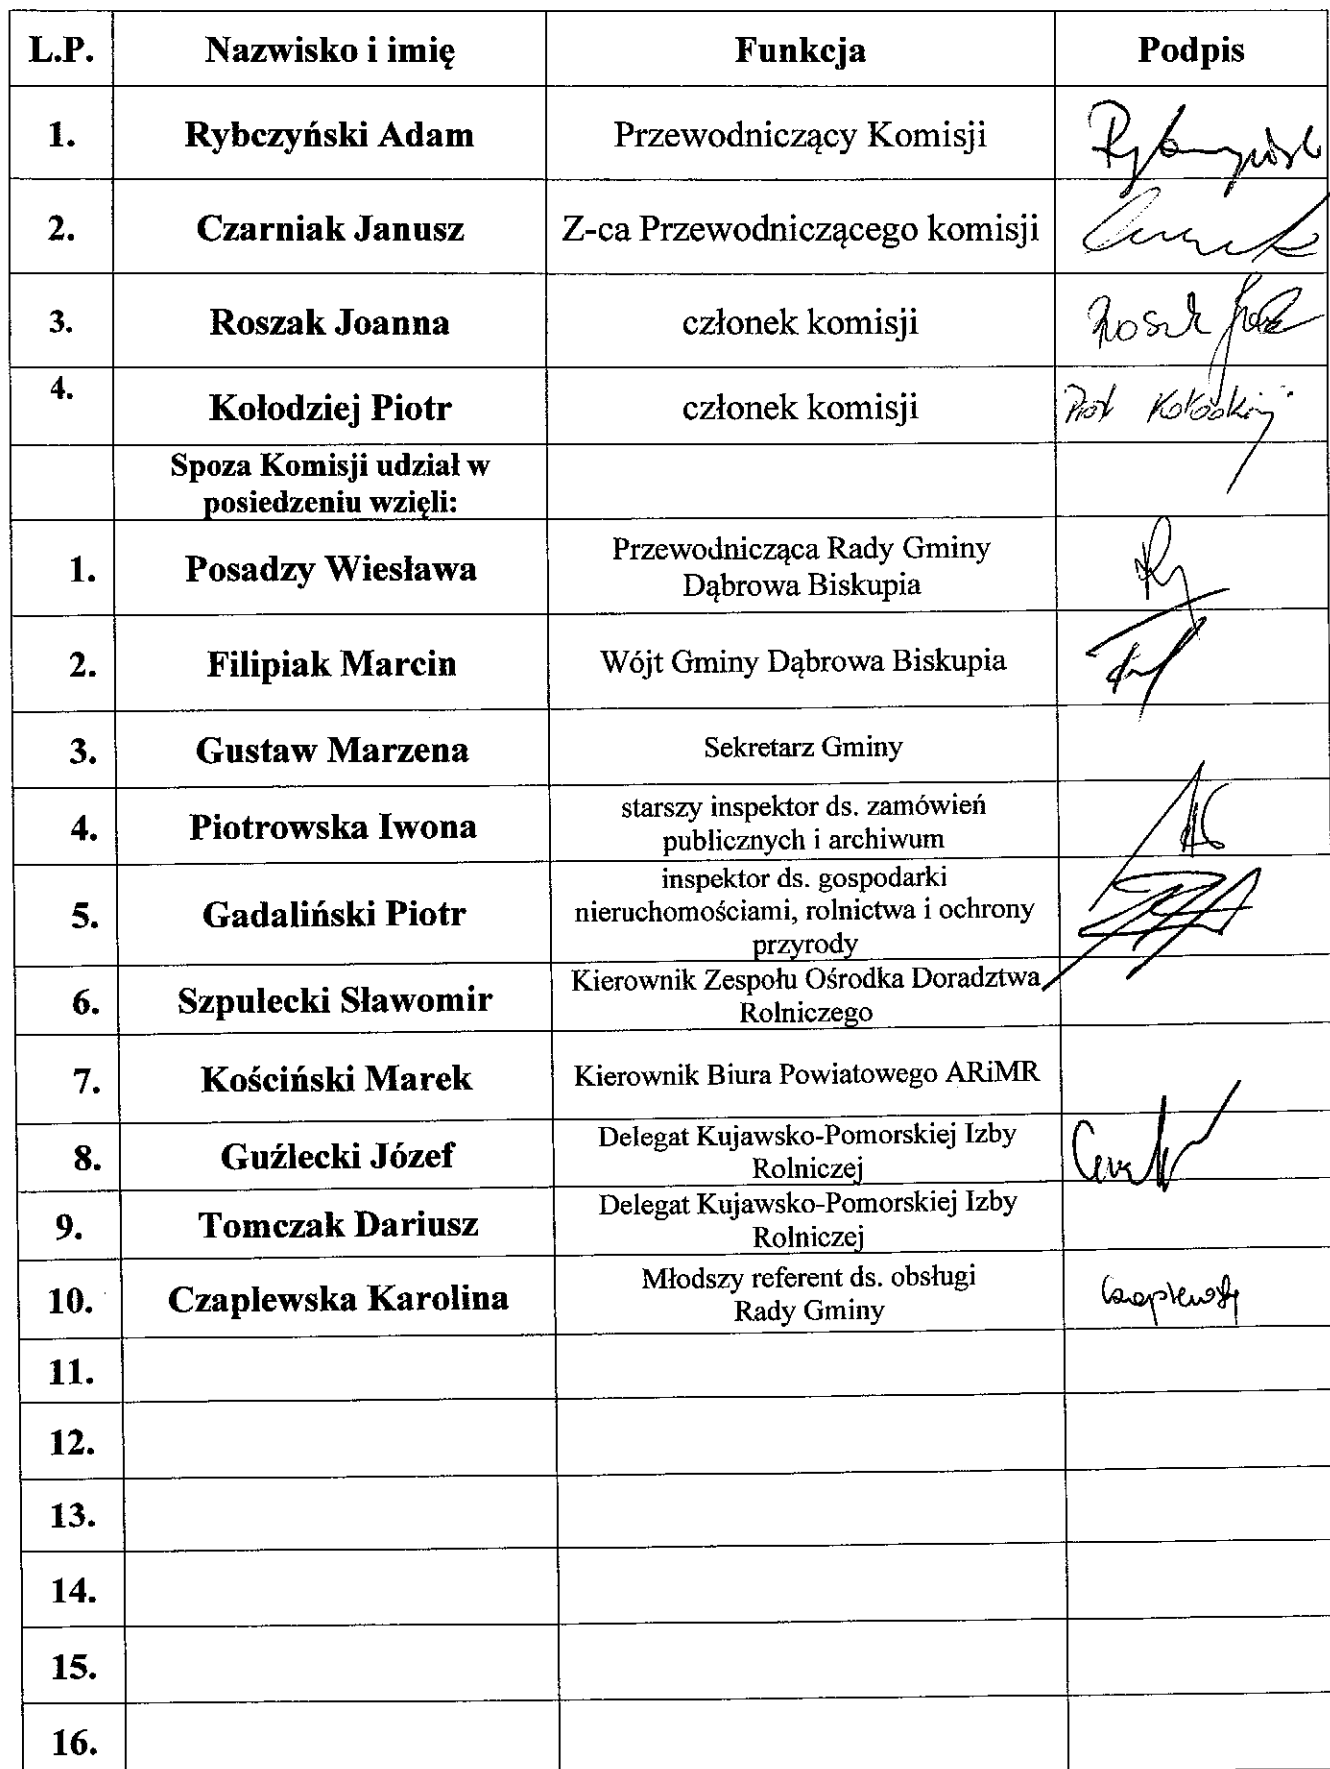 L.P. Nazwisko i imię Funkcja Podpis
1. Rybczyński Adam Przewodniczący Komisji
2. Czarniak Janusz Z-ca Przewodniczącego komisji
3. Roszak Joanna członek komisji
4. Kołodziej Piotr członek komisji Piotr Kołodziej
Spoza Komisji udział w
posiedzeniu wzięli:
1. Posadzy Wiesława Przewodnicząca Rady Gminy
Dąbrowa Biskupia
2. Filipiak Marcin Wójt Gminy Dąbrowa Biskupia
3. Gustaw Marzena Sekretarz Gminy
4. Piotrowska Iwona starszy inspektor ds. zamówień
publicznych i archiwum
5. Gadaliński Piotr inspektor ds. gospodarki
nieruchomościami, rolnictwa i ochrony
przyrody
6. Szpulecki Sławomir Kierownik Zespołu Ośrodka Doradztwa
Rolniczego
7. Kościński Marek Kierownik Biura Powiatowego ARiMR
8. Guźlecki Józef Delegat Kujawsko-Pomorskiej Izby
Rolniczej
9. Tomczak Dariusz Delegat Kujawsko-Pomorskiej Izby
Rolniczej
10. Czaplewska Karolina Młodszy referent ds. obsługi
Rady Gminy
11.
12.
13.
14.
15.
16.